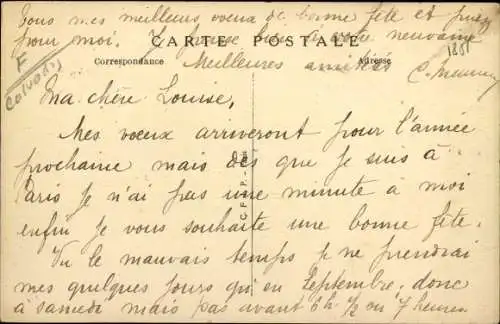 Tous mes meilleurs voeux de bonne fête et priez
pour moi. Je pense bien à votre neuvaine
CARTE POSTALE
Correspondance
Adresse
Meilleures amitiés
1881
F
Calvados
Ma chère Louise,
Mes voeux arriveront pour l'année
prochaine mais dès que je suis à
Paris je n'ai pas une minute à moi
enfin je vous souhaite une bonne fête.
Vu le mauvais temps je ne prendrai
mes quelques jours qu'en Septembre. donc
à samedi mais pas avant 6h 1/2 ou 7 heures.